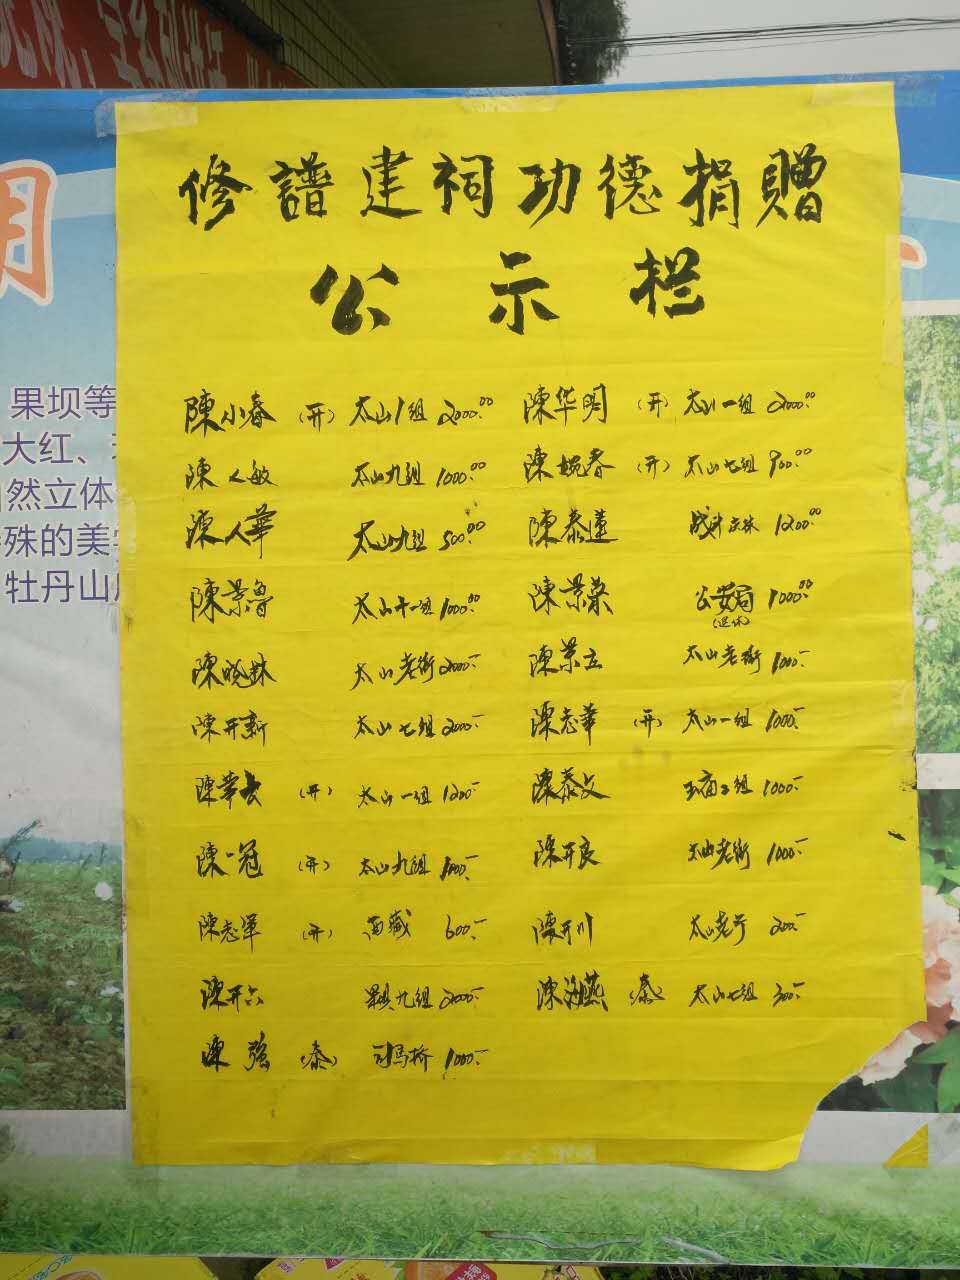 修譜建祠功德捐贈
公示栏
陳小春 (开) 太山1组 2000.00 陳华明 (开) 太山一组 2000.00
陳人敏 太山九组 1000.00 陳婉春 (开) 太山七组 900.00
陳人華 太山九组 500.00 陳泰蓮 1200.00
陳景魯 太山十一组 1000.00 陳景荣 公安局 (退休) 1000.00
陳晓林 太山老街 2000.- 陳景立 太山老街 1000.-
陳开新 太山七组 2000.- 陳志華 (开) 太山一组 1000.-
陳華 (开) 太山一组 1200.- 陳泰文 1000.-
陳一冠 (开) 太山九组 陳开良 太山老街 1000.-
陳志军 (开) 西藏 600.- 陳开川 太山老街 200.-
陳开六 九组 2000.- 陳海燕 (泰) 太山七组 300.-
陳强 (泰) 司马桥 1000.-
果坝等
大红、
自然立体
殊的美
牡丹山